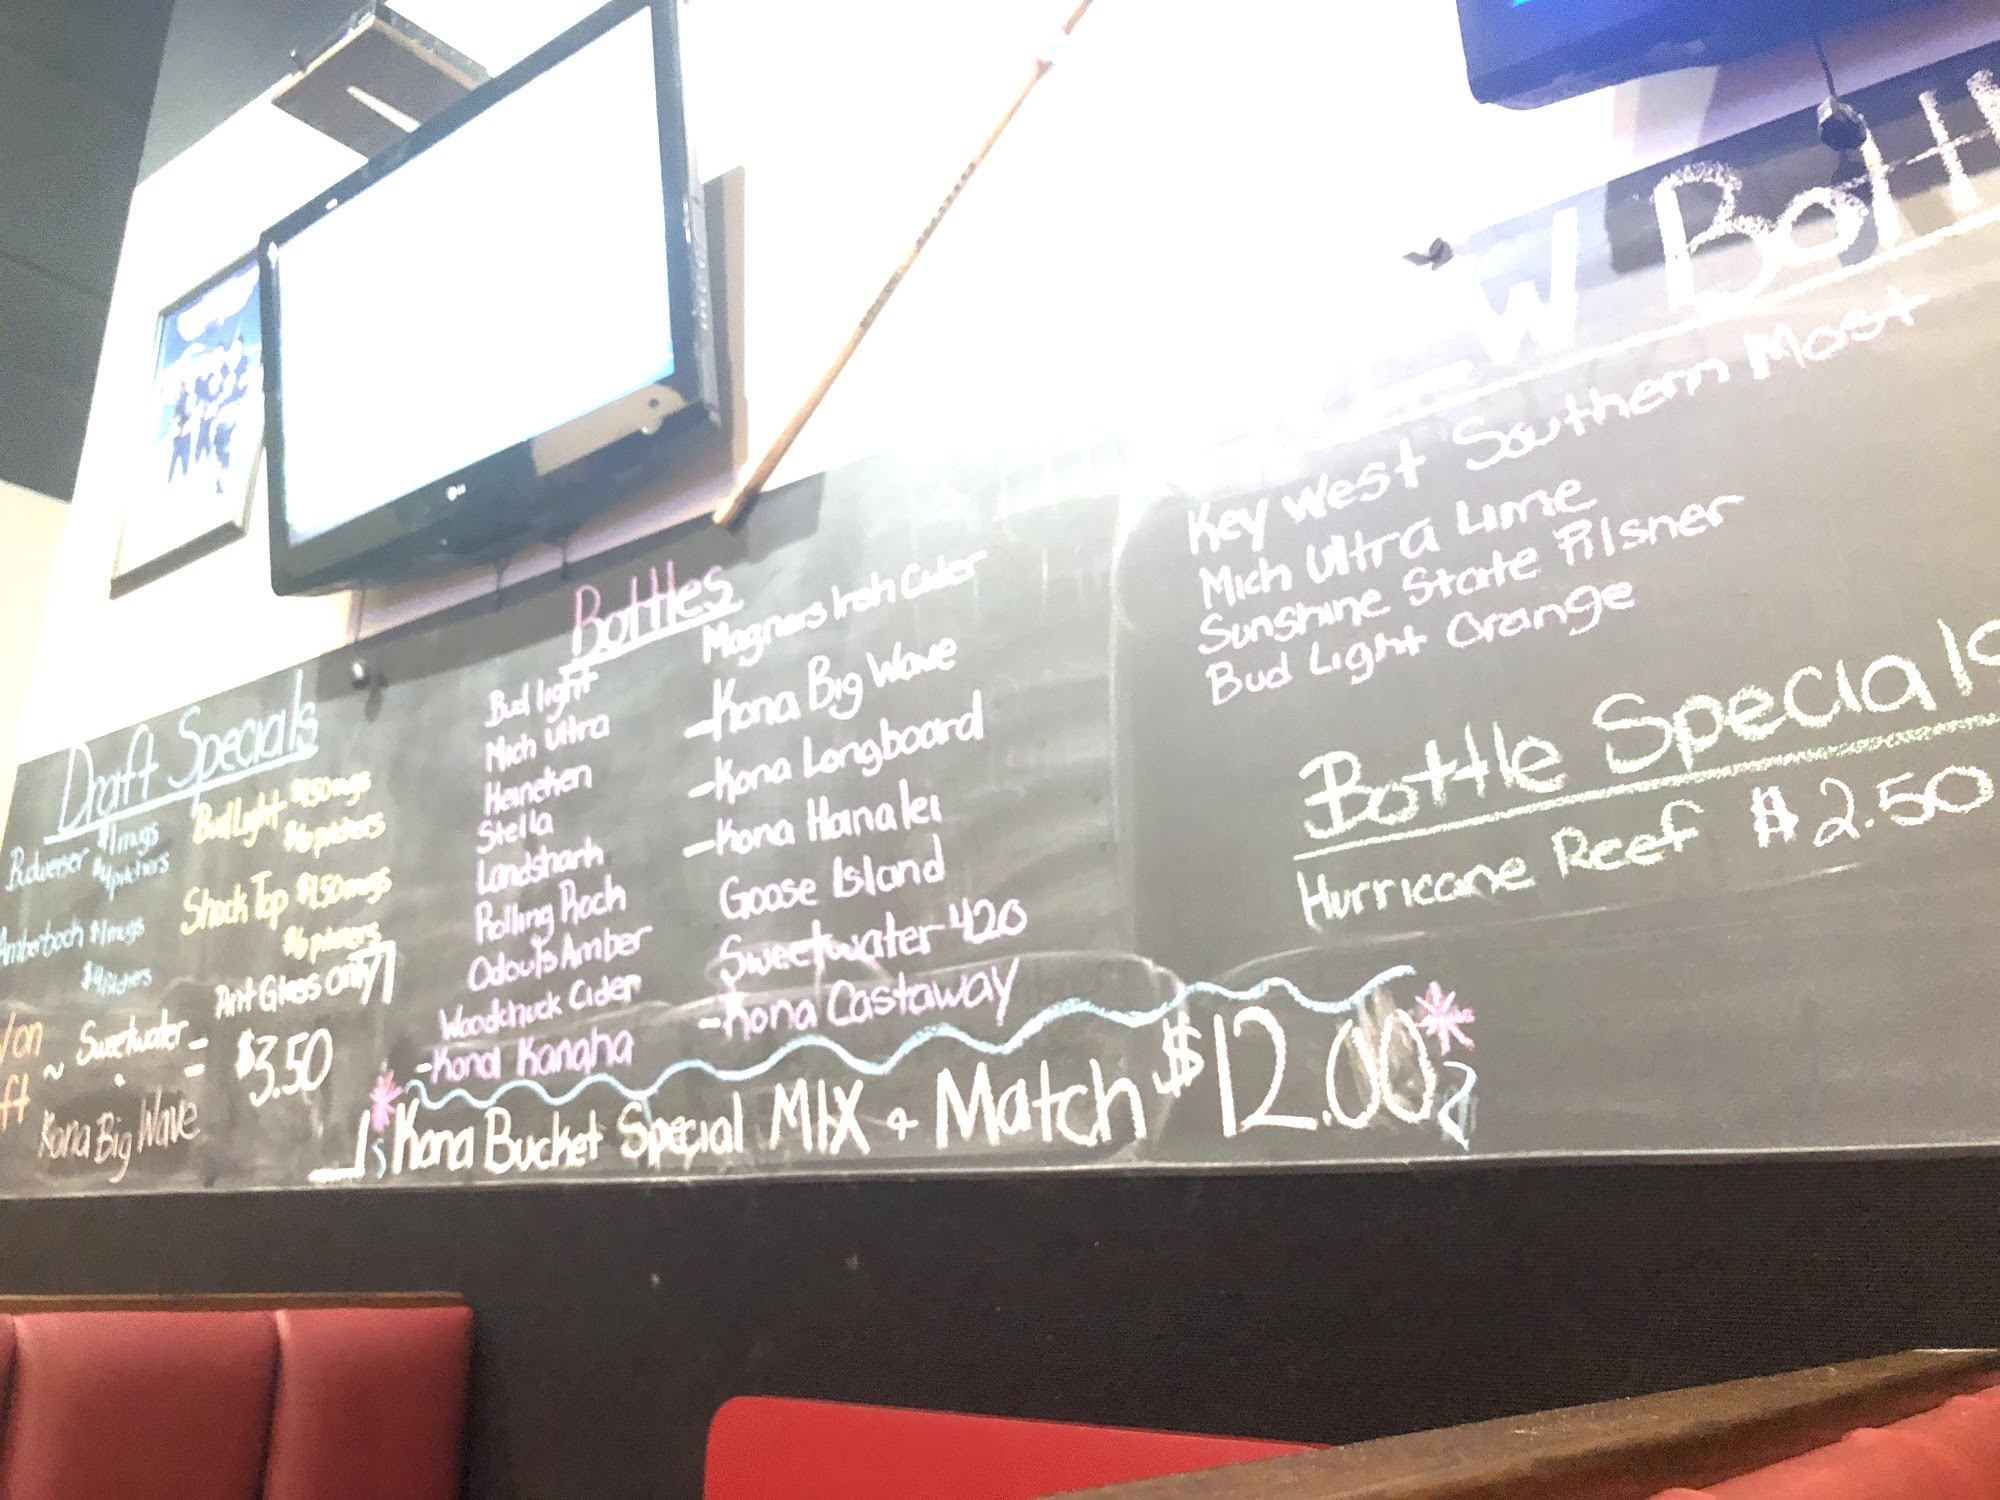 Draft Specials
Budweiser $1 mugs
$4 pitchers
Bud Light $1.50 mugs
$6 pitchers
Amberboch $1 mugs
$4 pitchers
Shock Top $1.50 mugs
$6 pitchers
Pint Glass only
~ Sweetwater -
$3.50
Kona Big Wave
Bottles
Bud light
Mich Ultra
Heineken
Stella
Landshark
Rolling Rock
Odouls Amber
Woodchuck Cider
-Kona Kanaha
Magners Irish Cider
-Kona Big Wave
-Kona Longboard
-Kona Hanalei
Goose Island
Sweetwater 420
-Kona Castaway
Kona Bucket Special MIX + Match $12.00
Key West Southern Most
Mich Ultra Lime
Sunshine State Pilsner
Bud Light Orange
Bottle Specials
Hurricane Reef $2.50
LG